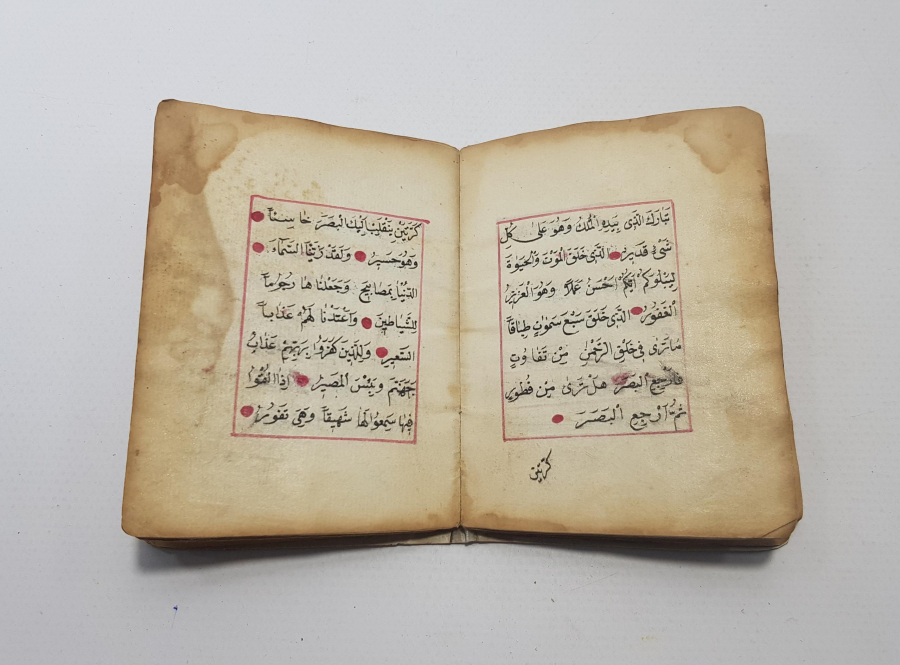 تَبَارَكَ الَّذٖى بِيَدِهِ الْمُلْكُ وَهُوَ عَلٰى كُلِّ
شَىْءٍ قَدٖيرٌ الَّذٖى خَلَقَ الْمَوْتَ وَالْحَيٰوةَ
لِيَبْلُوَكُمْ اَيُّكُمْ اَحْسَنُ عَمَلًا وَهُوَ الْعَزٖيزُ
الْغَفُورُ الَّذٖى خَلَقَ سَبْعَ سَمٰوَاتٍ طِبَاقًا
مَا تَرٰى فٖى خَلْقِ الرَّحْمٰنِ مِنْ تَفَاوُتٍ
فَارْجِعِ الْبَصَرَ هَلْ تَرٰى مِنْ فُطُورٍ
ثُمَّ ارْجِعِ الْبَصَرَ
كَرَّتَيْنِ
كَرَّتَيْنِ يَنْقَلِبْ اِلَيْكَ الْبَصَرُ خَاسِئًا
وَهُوَ حَسٖيرٌ وَلَقَدْ زَيَّنَّا السَّمَاءَ
الدُّنْيَا بِمَصَابٖيحَ وَجَعَلْنَاهَا رُجُومًا
لِلشَّيَاطٖينِ وَاَعْتَدْنَا لَهُمْ عَذَابَ
السَّعٖيرِ وَلِلَّذٖينَ كَفَرُوا بِرَبِّهِمْ عَذَابُ
جَهَنَّمَ وَبِئْسَ الْمَصٖيرُ اِذَا اُلْقُوا
فٖيهَا سَمِعُوا لَهَا شَهٖيقًا وَهِىَ تَفُورُ